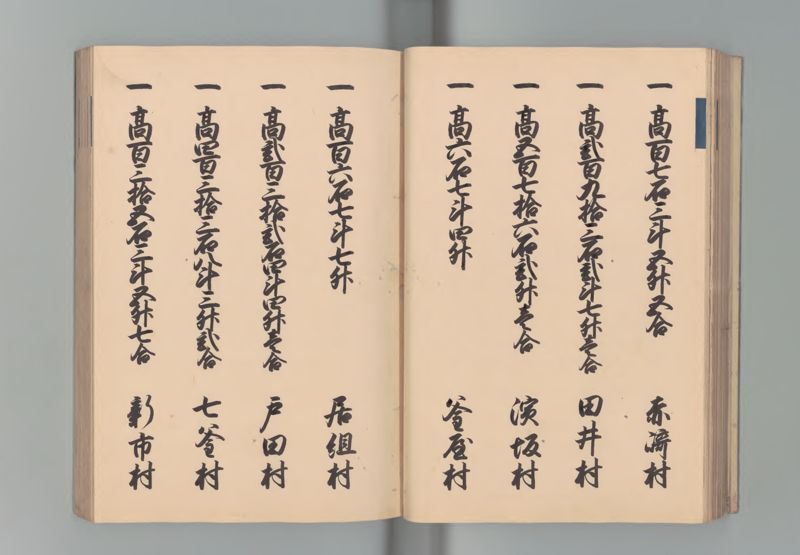 一 高百七石三斗五升五合 赤﨑村
一 高弐百九拾三石弐斗七升壱合 田井村
一 高五百七拾六石弐升壱合 濱坂村
一 高六石七斗四升 釜屋村
一 高百六石七斗七升 居組村
一 高弐百三拾弐石四斗四升壱合 戸田村
一 高四百三拾三石八斗三升弐合 七釜村
一 高百三拾五石三斗五升七合 新市村